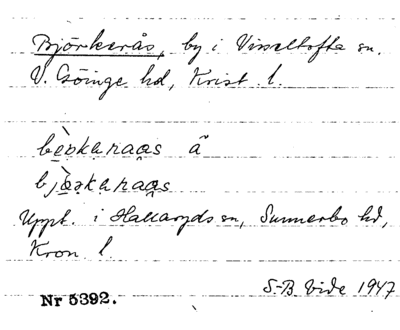 Björkerås, by i Visseltofta sn,
V. Göinge hd, Krist. l.
bè̱ɔkəraas ã
bjò̱əkəraas
Uppt. i Hallaryds sn, Sunnerbo hd,
Kron l
S.-B. Vide 1947
Nr 5392.